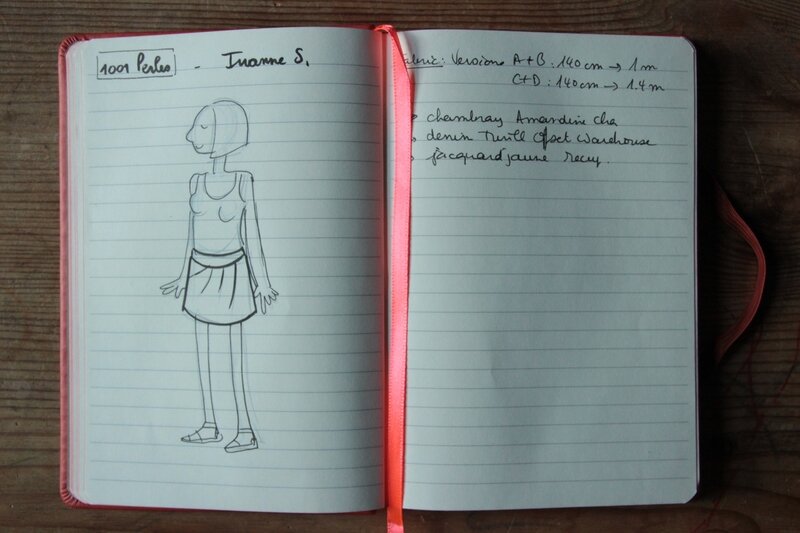 1001 Perles - Ivanne S.
Versions A+B : 140 cm → 1 m
C+D : 140 cm → 1.4 m
chambray Amandine Cha
denim Twill Offset Warehouse
jacquard jaune recup.